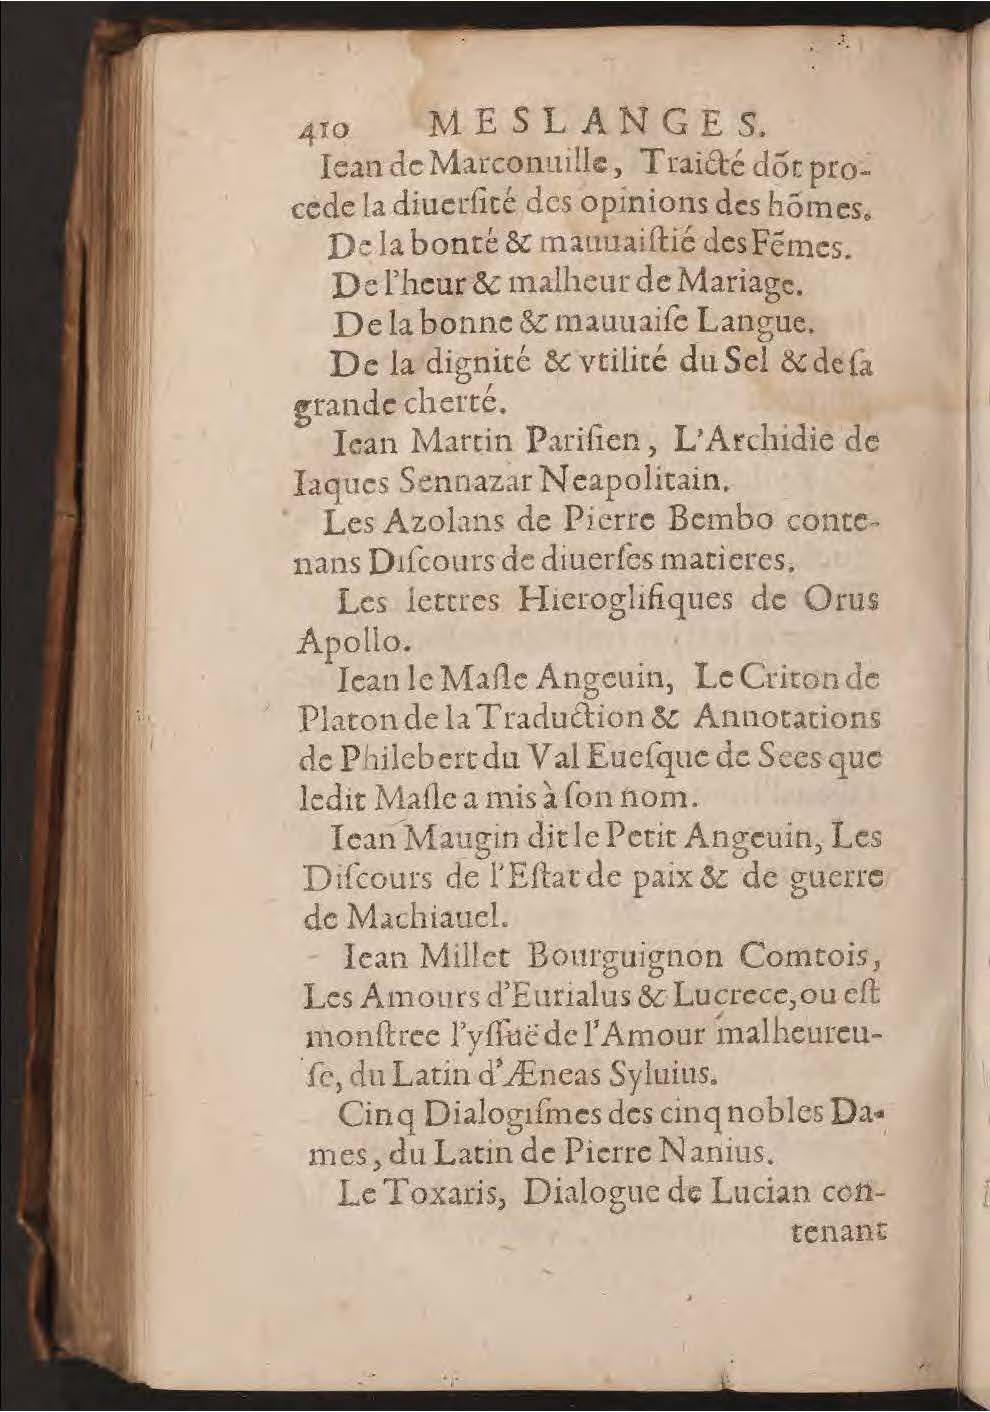 410 MESLANGES.
Iean de Marconuille, Traicté dõt pro-
cede la diuerſité des opinions des hõmes.
De la bonté & mauuaiſtié des Fẽmes.
De l'heur & malheur de Mariage.
De la bonne & mauuaiſe Langue.
De la dignité & vtilité du Sel & de ſa
grande cherté.
Iean Martin Pariſien, L'Archidie de
Iaques Sennazar Neapolitain.
Les Azolans de Pierre Bembo conte-
nans Diſcours de diuerſes matieres.
Les lettres Hieroglifiques de Orus
Apollo.
Iean le Maſle Angeuin, Le Criton de
Platon de la Traduction & Annotations
de Philebert du Val Eueſque de Sees que
ledit Maſle a mis à ſon nom.
Iean Maugin dit le Petit Angeuin, Les
Diſcours de l'Eſtat de paix & de guerre
de Machiauel.
Iean Millet Bourguignon Comtois,
Les Amours d'Eurialus & Lucrece, ou eſt
monſtree l'yſſuë de l'Amour malheureu-
ſe, du Latin d'Æneas Syluius.
Cinq Dialogiſmes des cinq nobles Da-
mes, du Latin de Pierre Nanius.
Le Toxaris, Dialogue de Lucian con-
tenant